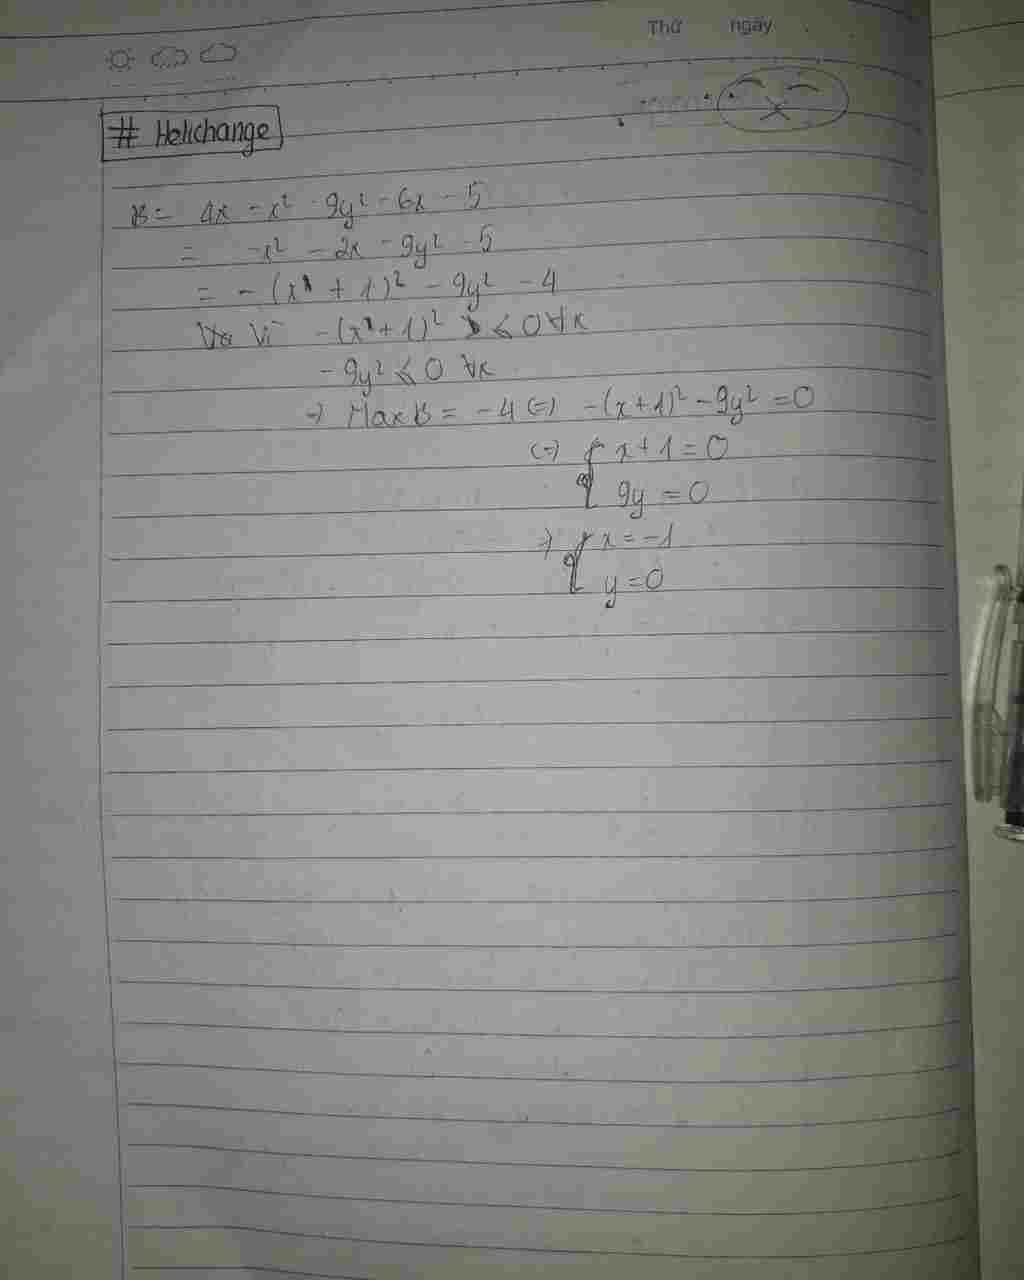 Thứ ngày
# Helichange
B = 4x - x² - 9y² - 6x - 5
= -x² - 2x - 9y² - 5
= - (x + 1)² - 9y² - 4
Vì -(x + 1)² ≤ 0 ∀x
- 9y² ≤ 0 ∀x
=) Max B = -4 (=) -(x+1)² - 9y² = 0
(=) { x + 1 = 0
9y = 0
=) { x = -1
y = 0